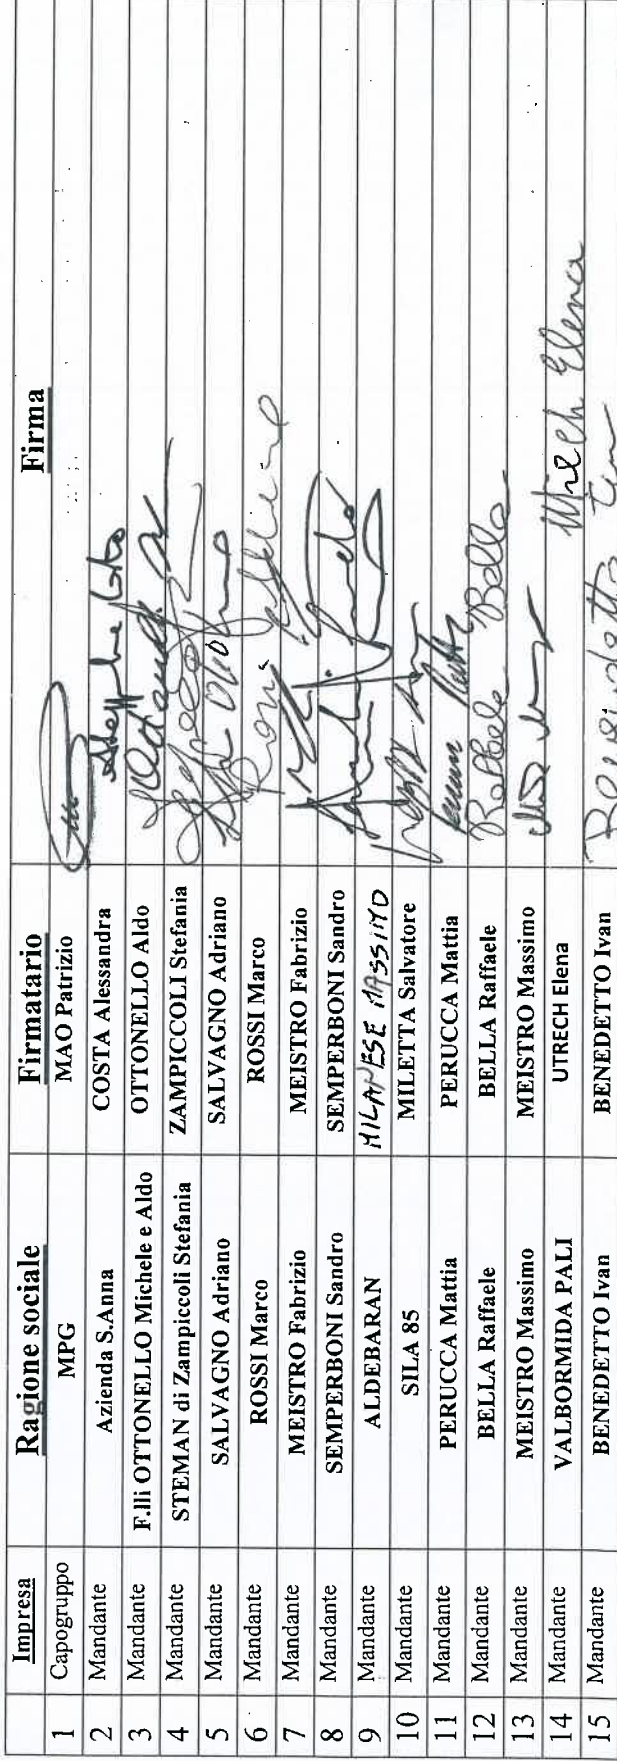 Impresa Ragione sociale Firmatario Firma
1 Capogruppo MPG MAO Patrizio
2 Mandante Azienda S.Anna COSTA Alessandra
3 Mandante F.lli OTTONELLO Michele e Aldo OTTONELLO Aldo
4 Mandante STEMAN di Zampiccoli Stefania ZAMPICCOLI Stefania
5 Mandante SALVAGNO Adriano SALVAGNO Adriano
6 Mandante ROSSI Marco ROSSI Marco
7 Mandante MEISTRO Fabrizio MEISTRO Fabrizio
8 Mandante SEMPERBONI Sandro SEMPERBONI Sandro
9 Mandante ALDEBARAN MILANESE MASSIMO
10 Mandante SILA 85 MILETTA Salvatore
11 Mandante PERUCCA Mattia PERUCCA Mattia
12 Mandante BELLA Raffaele BELLA Raffaele Raffaele Bella
13 Mandante MEISTRO Massimo MEISTRO Massimo
14 Mandante VALBORMIDA PALI UTRECH Elena Utrech Elena
15 Mandante BENEDETTO Ivan BENEDETTO Ivan Benedetto